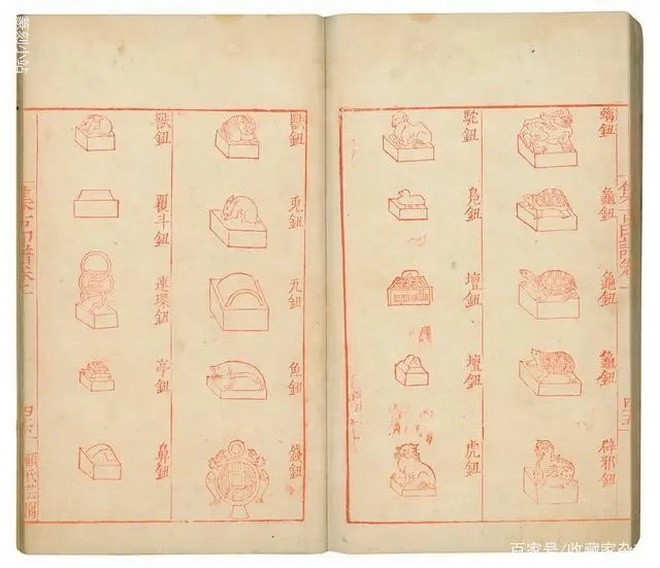 螭鈕
龜鈕
龜鈕
龜鈕
辟邪鈕
駝鈕
鳧鈕
壇鈕
壇鈕
虎鈕
獸鈕
兎鈕
瓦鈕
魚鈕
錢鈕
獸鈕
覆斗鈕
連環鈕
亭鈕
鼻鈕
集古印譜卷之一
四六
顧氏芸閣
篆刻小站
百家号/收藏家杂